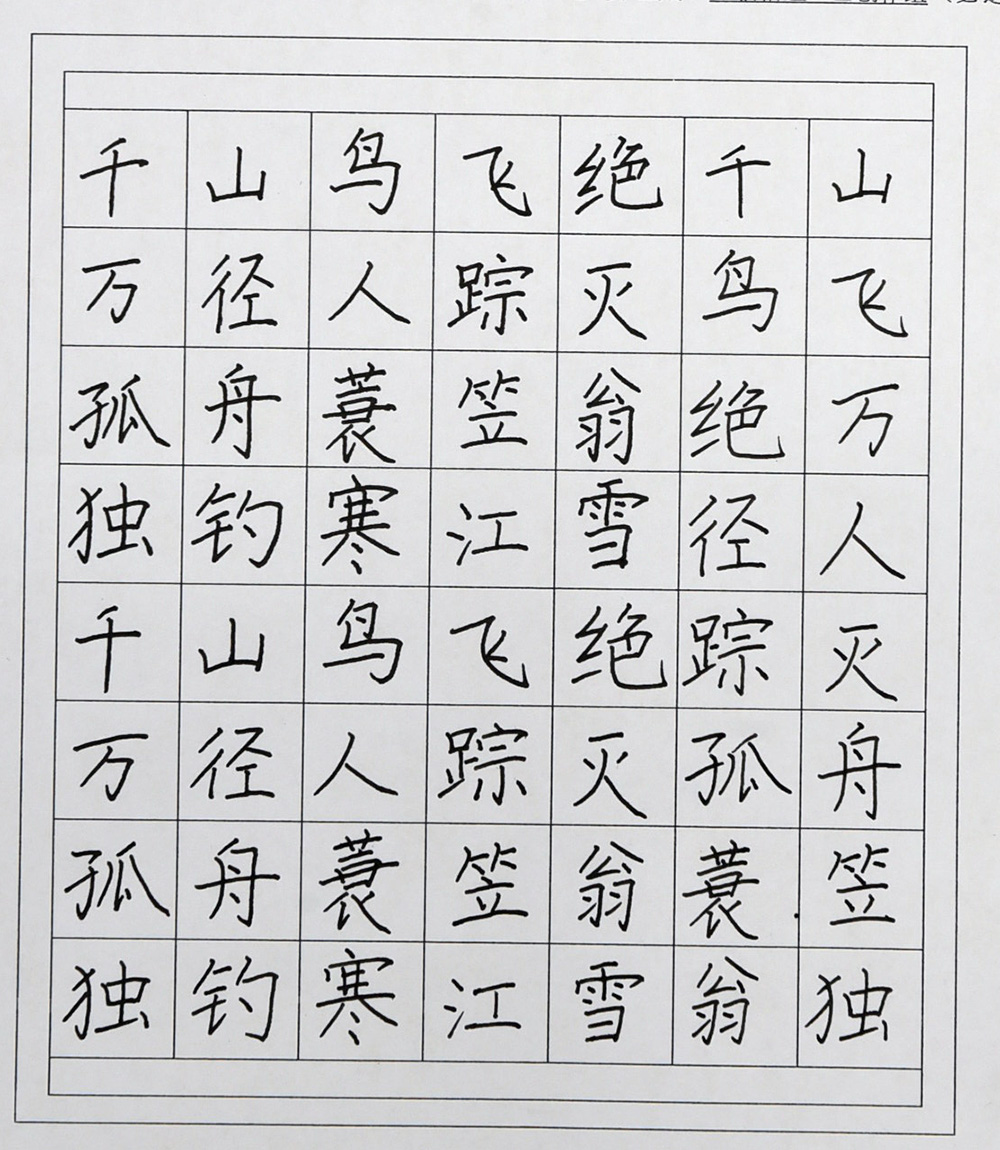 千山鸟飞绝千山
万径人踪灭鸟飞
孤舟蓑笠翁绝万
独钓寒江雪径人
千山鸟飞绝踪灭
万径人踪灭孤舟
孤舟蓑笠翁蓑笠
独钓寒江雪翁独